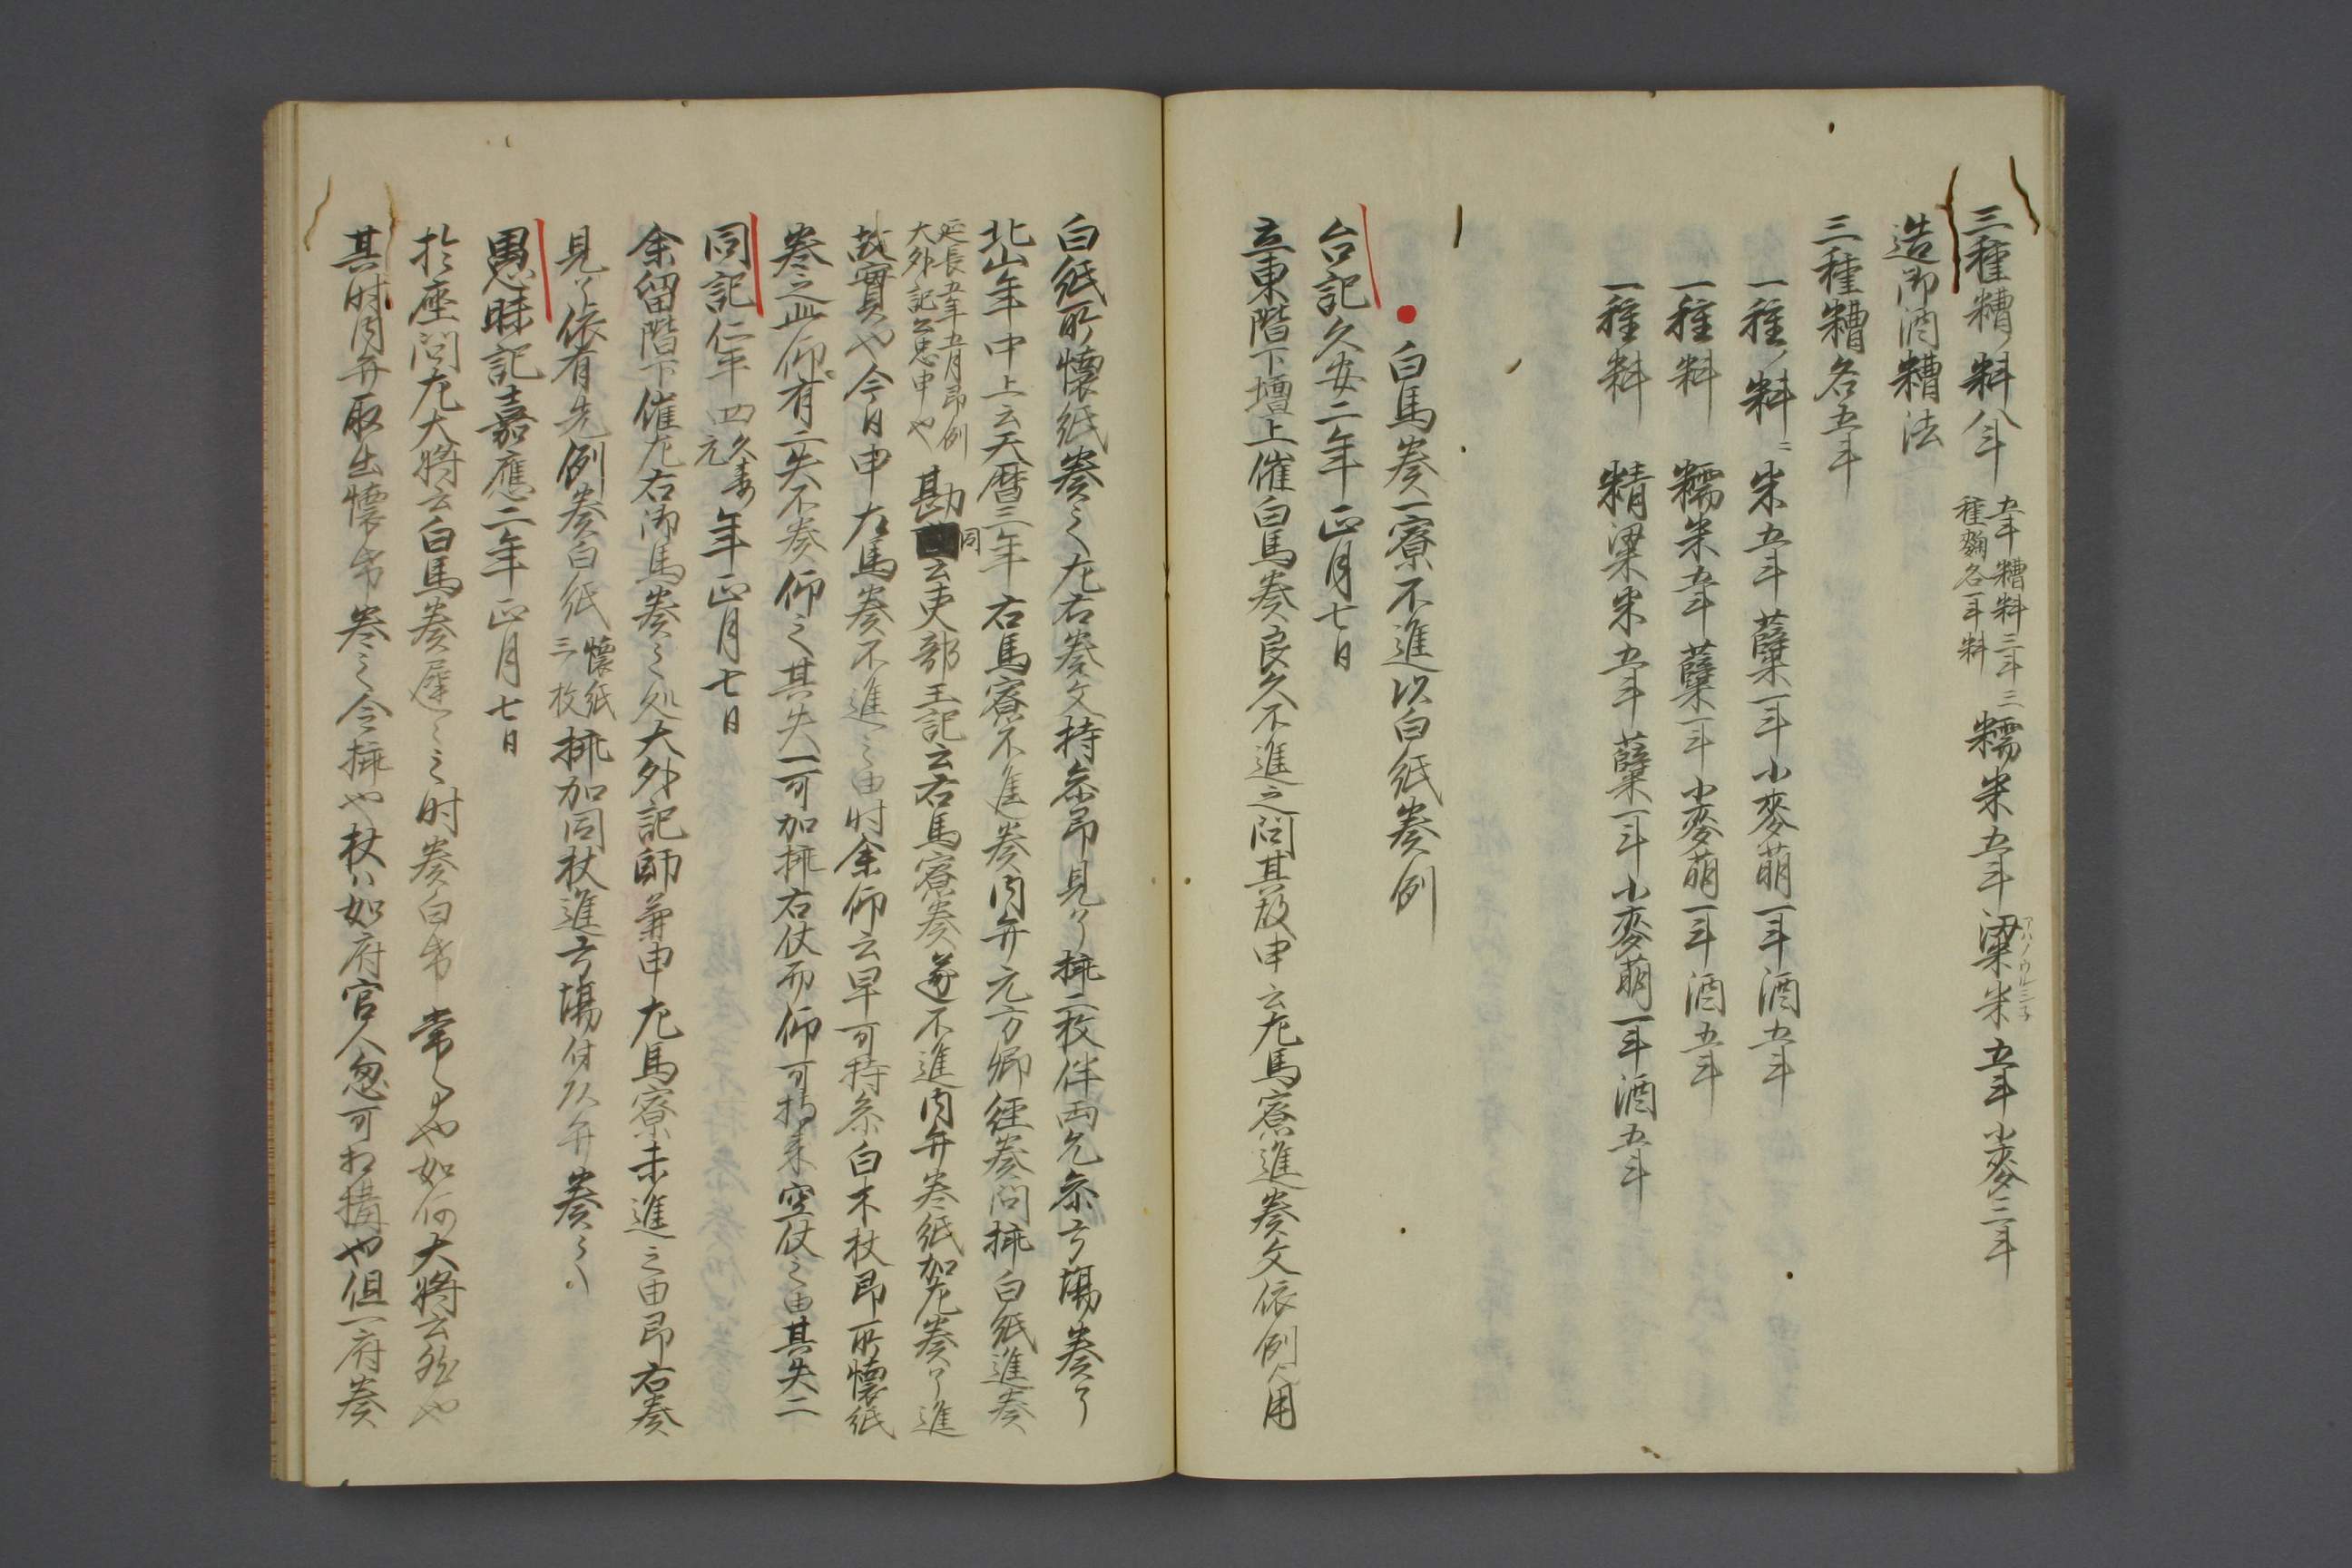 三種糟料八斗 五斗糟料三斗三種麹各一斗料 糯米五斗粱米五斗小麥三斗
アハノウルシネ
造御酒糟法
三種糟各五斗
一種ノ料ニ米五斗蘖一斗小麥萌一斗酒五斗
一種料 糯米五斗蘖一斗小麥萌一斗酒五斗
一種料 精粱米五斗蘖一斗小麥萌一斗酒五斗
白馬奏一寮不進以白紙奏例
台記久安二年正月七日
立東階下壇上催白馬奏良久不進之問其故申云左馬寮進奏文依例用
白紙所懷紙奏之左右奏文持参昂見了挿二枚伴両允参弓場奏了
北山年中上云天暦三年右馬寮不進奏内弁元方卿経奏問挿白紙進奏
延長五年五月昂例
大外記公忠申也 勘同云吏部王記云右馬寮奏遂不進内弁巻紙加左奏了進
故實也今日申左馬奏不進之由時余仰云早可持参白木杖昂所懷紙
巻之此仰有二失不奏仰之其失一可加挿右仗而仰可持来空仗之由其失二
同記仁平四久寿元年正月七日
余留階下催左右御馬奏之処大外記師業申左馬寮未進之由昂右奏
見了依有先例奏白紙 懷紙三枚 挿加同杖進弓場付頭弁奏之
愚昧記嘉應二年正月七日
於座問左大将云白馬奏遅々之時奏白帋常事也如何大将云然也
其時内弁取出懷帋巻之令挿也杖ハ如府官人忽可相搆也但一府奏